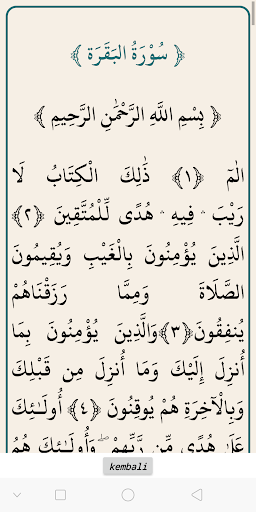 ﴿ سُوْرَةُ البَقَرَة ﴾
﴿ بِسْمِ اللَّهِ الرَّحْمَٰنِ الرَّحِيمِ ﴾
الٓمٓ ﴿١﴾ ذَٰلِكَ الْكِتَابُ لَا
رَيْبَ ۛ فِيهِ ۛ هُدًى لِّلْمُتَّقِينَ ﴿٢﴾
الَّذِينَ يُؤْمِنُونَ بِالْغَيْبِ وَيُقِيمُونَ
الصَّلَاةَ وَمِمَّا رَزَقْنَاهُمْ
يُنفِقُونَ ﴿٣﴾ وَالَّذِينَ يُؤْمِنُونَ بِمَا
أُنزِلَ إِلَيْكَ وَمَا أُنزِلَ مِن قَبْلِكَ
وَبِالْآخِرَةِ هُمْ يُوقِنُونَ ﴿٤﴾ أُولَـٰئِكَ
عَلَىٰ هُدًى مِّن رَّبِّهِمْ ۖ وَأُولَـٰئِكَ هُمُ
kembali